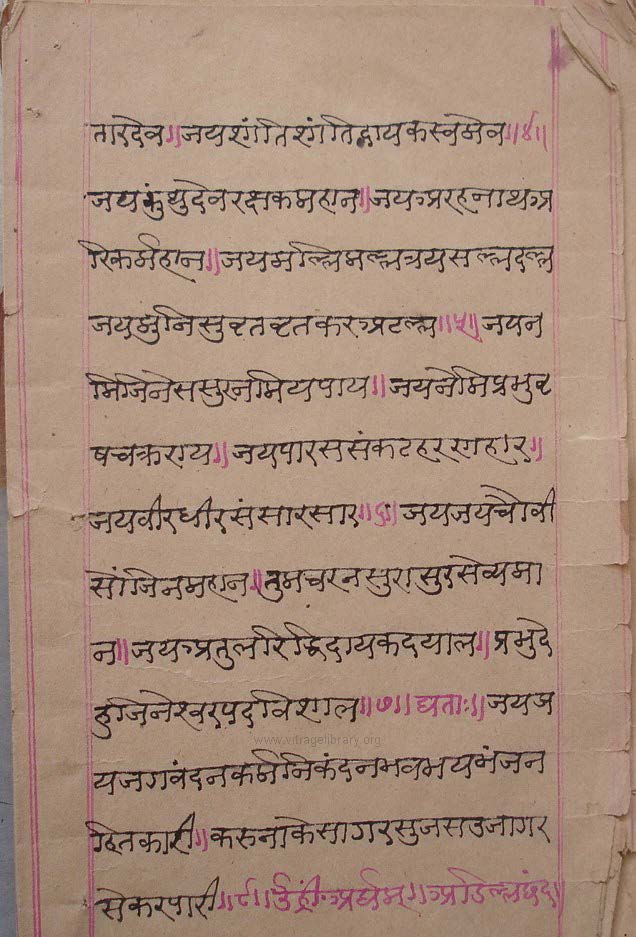 तारदेव॥जयशंतिशंतिदायकस्वमेव॥४॥
जयकुंथुदेवरक्षकमहान॥जयअरहनाथअ
रिकर्महान॥जयमल्लिमल्लत्रयसल्लदल्ल
जयमुनिसुवृतवृतकरअटल्ल॥५॥जयन
मिजिनेससुरनमियपाय॥जयनेमिप्रभुवृ
षचक्रराय॥जयपारससंकटहररगहार॥
जयवीरधीरसंसारसार॥६॥जयजयचौवी
सांजिनमहान॥तुमचरनसुरासुरसेव्यमा
न॥जयअतुलरिद्धिदायकदयाल॥प्रभुदे
हुजिनेस्वरपदविशाल॥७॥घताः॥जयज
यजगवंदनकर्मनिकंदनभवभयभंजन
हितकारी॥करुनाकेसागरसुजसउजागर
सेकरपारी॥८॥उँह्रीँअर्घम्॥अडिल्लछंद॥
www.vitragelibrary.org